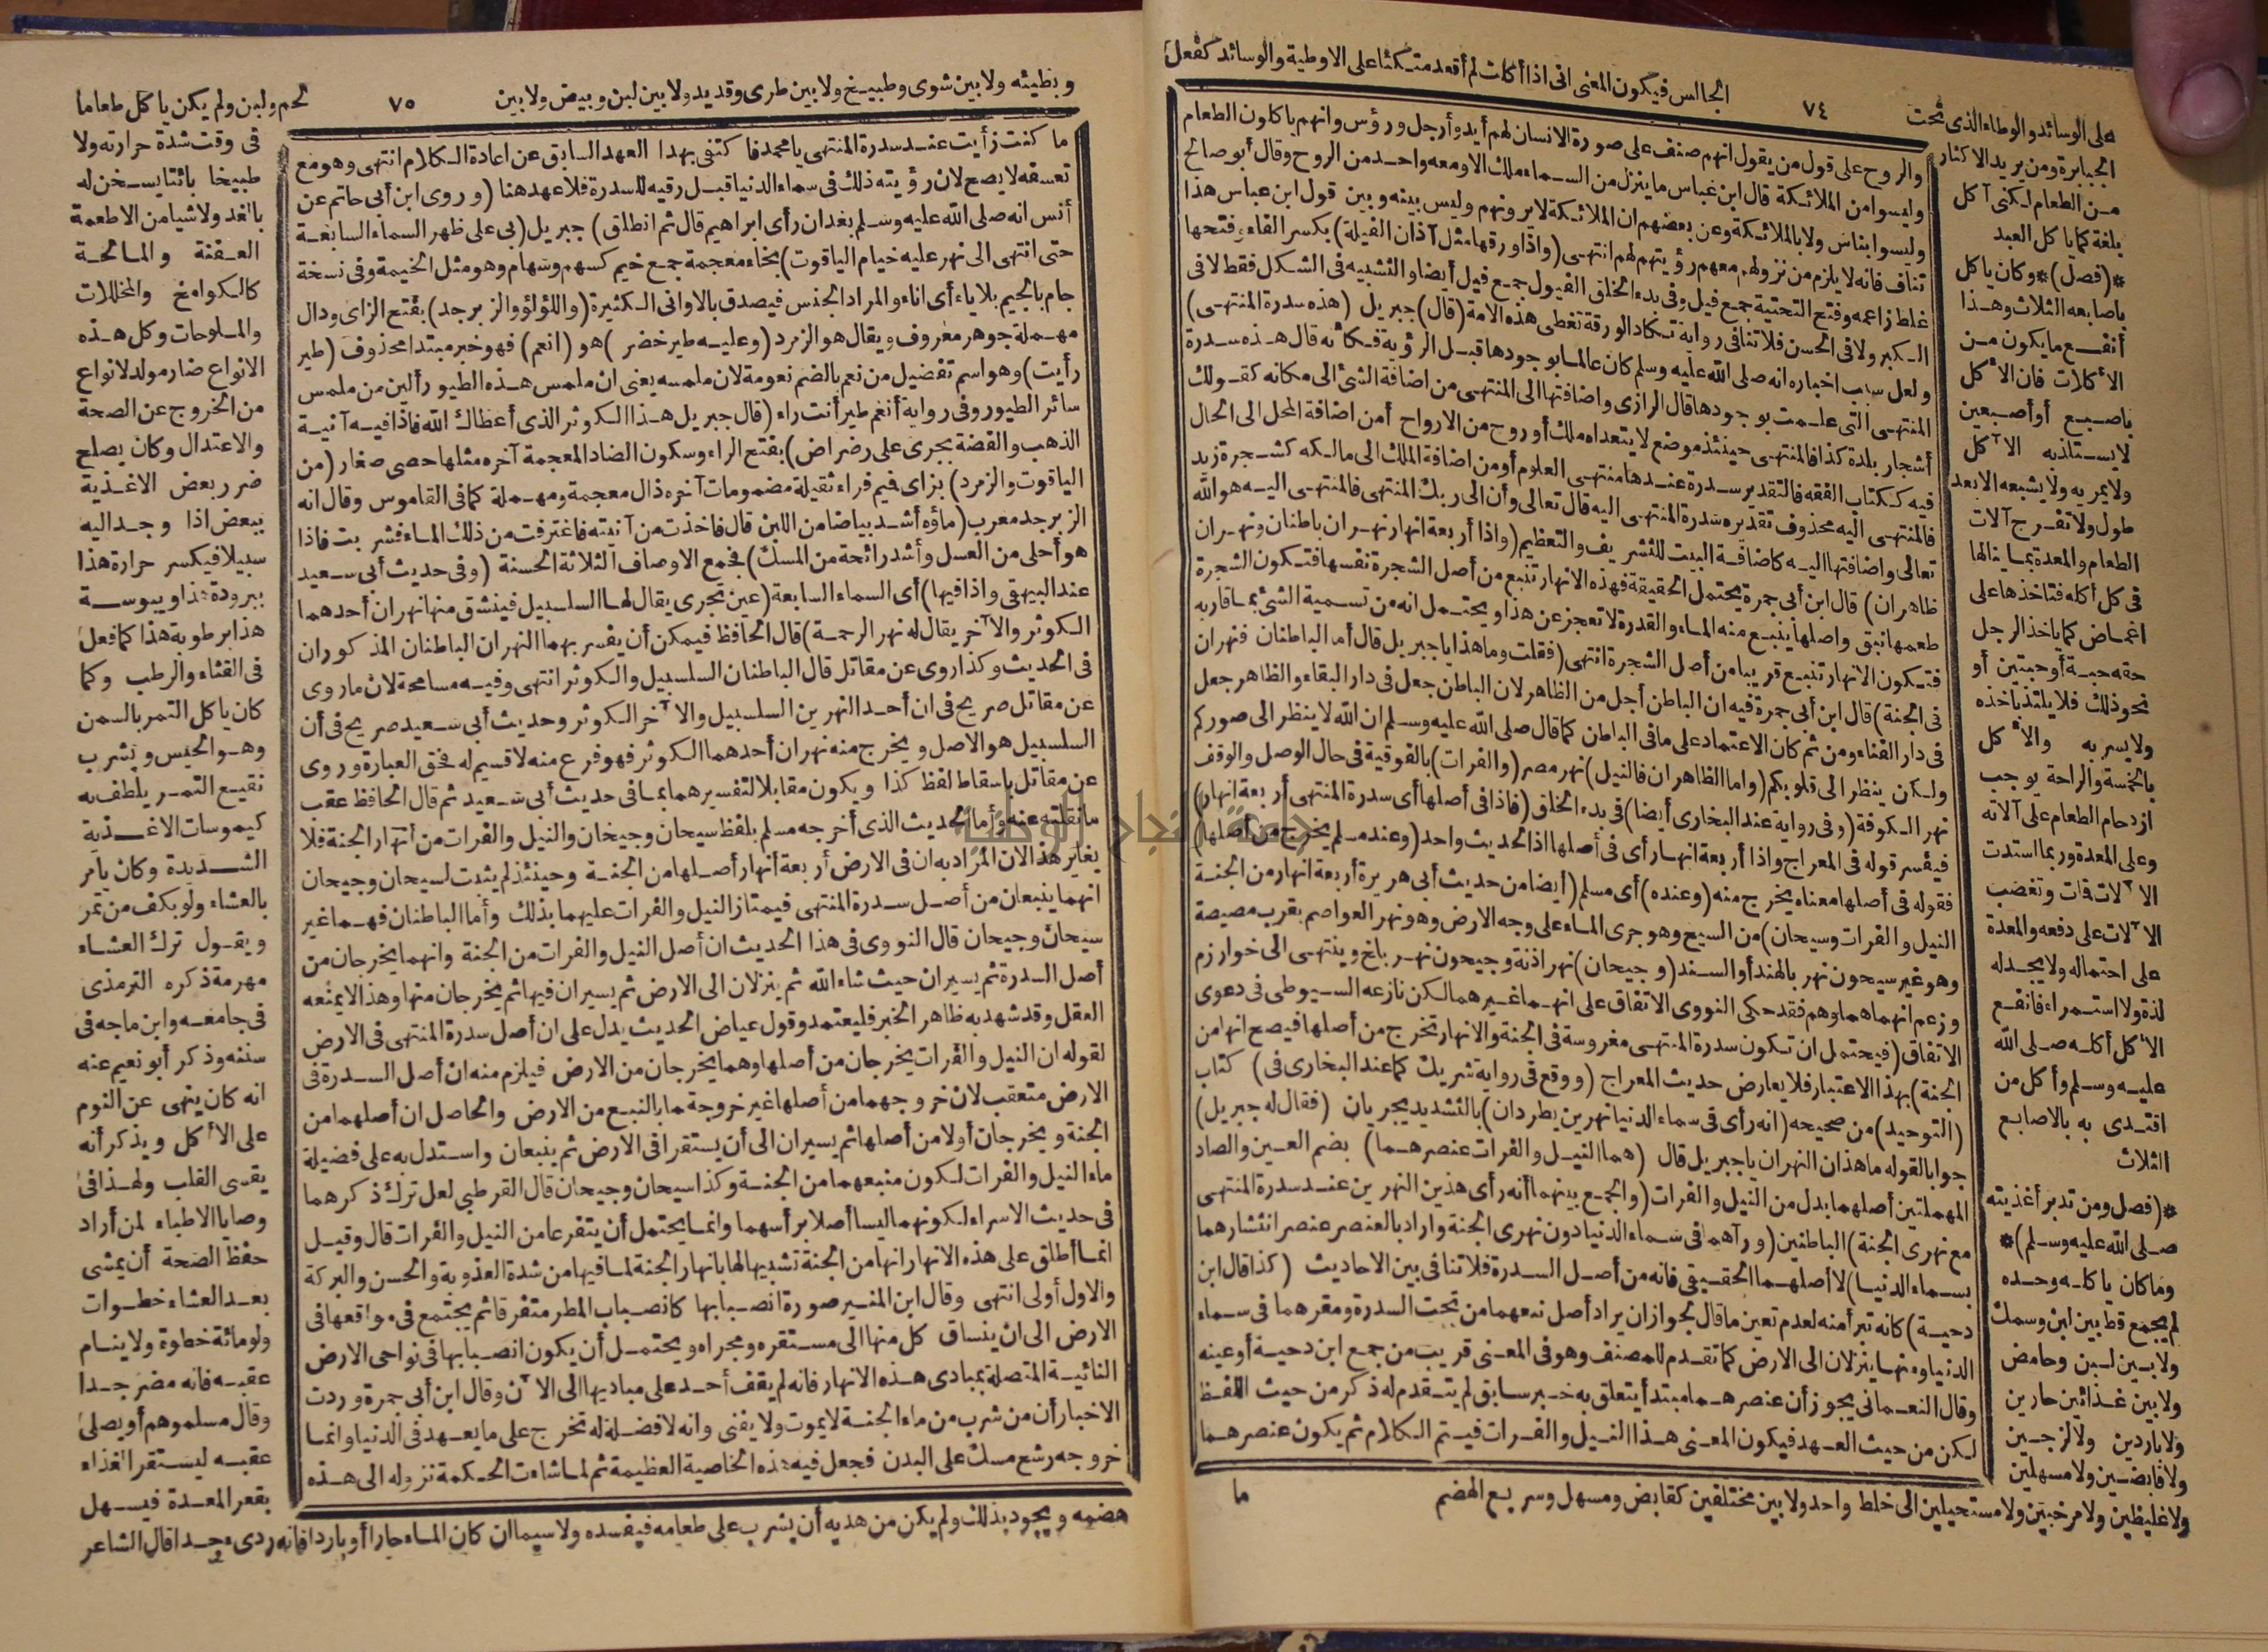 على الوسائد والوطاء الذى تحت
٧٤
الجالس فيكون المعنى انى اذا أكلت لم أقعد متكئا على الاوطية والوسائد كفعل
الجبابرة ومن يريد الاكثار
من الطعام لكنى آكل
بلغة كما يأكل العبد
*(فصل)* وكان يأكل
باصابعه الثلاث وهذا
أنفع ما يكون من
الأكلات فان الأكل
باصبع أو أصبعين
لا يستلذبه الآكل
ولا يمريه ولا يشبعه الا بعد
طول ولا تفرح آلات
الطعام والمعدة بما ينالها
فى كل أكلة فتاخذها على
اغماض كما ياخذ الرجل
حقه حبة أو حبتين أو
نحو ذلك فلا يلتذ باخذه
ولا يسر به والأكل
بالخمسة والراحة يوجب
ازدحام الطعام على آلاته
وعلى المعدة وربما استدت
الآلات فمات وتغصب
الآلات على دفعه والمعدة
على احتماله ولا يجد له
لذة ولا استمراء فانفع
الأكل أكله صلى الله
عليه وسلم وأكل من
اقتدى به بالاصابع
الثلاث
*(فصل ومن تدبر أغذيته
صلى الله عليه وسلم)*
وما كان يأكله وحده
لم يجمع قط بين لبن وسمك
ولا بين لبن وحامض
ولا بين غذائين حارين
ولا باردين ولا لزجين
ولا قابضين ولا مسهلين
ولا غليظين ولا مرخيين ولا مستحيلين الى خلط واحد ولا بين مختلفين كقابض ومسهل وسريع الهضم
والروح على قول من يقول انهم صنف على صورة الانسان لهم أيد وأرجل ورؤس وانهم يأكلون الطعام
وليسوا من الملائكة قال ابن عباس ما ينزل من السماء ملك الا ومعه واحد من الروح وقال أبو صالح
وليسوا بناس ولا بالملائكة وعن بعضهم ان الملائكة لا يرونهم وليس بينه وبين قول ابن عباس هذا
تناف فانه لا يلزم من نزولهم معهم رؤيتهم لهم انتهى (واذا ورقها مثل آذان الفيلة) بكسر الفاء وفتحها
غلط زاعمه وفتح التحتية جمع فيل وفى بدء الخلق الفيول جمع فيل أيضا والتشبيه فى الشكل فقط لا فى
الكبر ولا فى الحسن فلا تنافى رواية تكاد الورقة تغطى هذه الامة (قال) جبريل (هذه سدرة المنتهى)
ولعل سبب اخباره انه صلى الله عليه وسلم كان عالما بوجودها قبل الرؤية فكأنه قال هذه سدرة
المنتهى التى علمت بوجودها قال الرازى واضافتها الى المنتهى من اضافة الشئ الى مكانه كقولك
أشجار بلدة كذا فالمنتهى حينئذ موضع لا يتعداه ملك أو روح من الارواح أمن اضافة المحل الى الحال
فيه ككتاب الفقه فالتقدير سدرة عندها منتهى العلوم أو من اضافة الملك الى مالكه كشجرة زيد
فالمنتهى اليه محذوف تقديره سدرة المنتهى اليه قال تعالى وأن الى ربك المنتهى فالمنتهى اليه هو الله
تعالى واضافتها اليه كاضافة البيت للتشريف والتعظيم (واذا أربعة انهار نهران باطنان ونهران
ظاهران) قال ابن أبى جمرة يحتمل الحقيقة فهذه الانهار تنبع من أصل الشجرة نفسها فتكون الشجرة
طعمها نبق واصلها ينبع منه الماء والقدرة لا تعجز عن هذا ويحتمل انه من تسمية الشئ بما قاربه
فتكون الانهار تنبع قريبا من أصل الشجرة انتهى (فقلت وما هذا يا جبريل قال أما الباطنان فنهران
فى الجنة) قال ابن أبى جمرة فيه ان الباطن أجل من الظاهر لان الباطن جعل فى دار البقاء والظاهر جعل
فى دار الفناء ومن ثم كان الاعتماد على ما فى الباطن كما قال صلى الله عليه وسلم ان الله لا ينظر الى صوركم
ولكن ينظر الى قلوبكم (واما الظاهران فالنيل) نهر مصر (والفرات) بالفوقية فى حال الوصل والوقف
نهر الكوفة (وفى رواية عند البخارى أيضا) فى بدء الخلق (فاذا فى أصلها أى سدرة المنتهى أربعة انهار)
فيفسر قوله فى المعراج واذا أربعة انهار أى فى أصلها اذ الحديث واحد (وعند مسلم يخرج من أصلها)
فقوله فى أصلها معناه يخرج منه (وعنده) أى مسلم (أيضا من حديث أبى هريرة أربعة انهار من الجنة
النيل والفرات وسيحان) من السيح وهو جرى الماء على وجه الارض وهو نهر العواصم بقرب مصيصة
وهو غير سيحون نهر بالهند أو السند (وجيحان) نهر اذنة وجيحون نهر بلخ وينتهى الى خوارزم
وزعم انهما هما وهم فقد حكى النووى الاتفاق على انهما غيرهما لكن نازعه السيوطى فى دعوى
الاتفاق (فيحتمل ان تكون سدرة المنتهى مغروسة فى الجنة والانهار تخرج من أصلها فيصح انها من
الجنة) بهذا الاعتبار فلا يعارض حديث المعراج (ووقع فى رواية شريك كما عند البخارى فى) كتاب
(التوحيد) من صحيحه (انه رأى فى سماء الدنيا نهرين يطردان) بالتشديد يجريان (فقال له جبريل)
جوابا لقوله ما هذان النهران يا جبريل قال (هما النيل والفرات عنصرهما) بضم العين والصاد
المهملتين أصلهما بدل من النيل والفرات (والجمع بينهما أنه رأى هذين النهرين عند سدرة المنتهى
مع نهرى الجنة) الباطنين (ورآهما فى سماء الدنيا دون نهرى الجنة واراد بالعنصر عنصر انتشارهما
بسماء الدنيا) لا أصلهما الحقيقى فانه من أصل السدرة فلا تنافى بين الاحاديث (كذا قال ابن
دحية) كانه تبرأ منه لعدم تعين ما قال لجواز ان يراد أصل نبعهما من تحت السدرة ومقرهما فى سماء
الدنيا ومنها ينزلان الى الارض كما تقدم للمصنف وهو فى المعنى قريب من جمع ابن دحية أو عينه
وقال النعمانى يجوز أن عنصرهما مبتدأ يتعلق به خبر سابق لم يتقدم له ذكر من حيث اللفظ
لكن من حيث العهد فيكون المعنى هذا النيل والفرات فيتم الكلام ثم يكون عنصرهما
ما
وبطيئه ولا بين شوى وطبيخ ولا بين طرى وقديد ولا بين لبن وبيض ولا بين
٧٥
لحم ولبن ولم يكن يأكل طعاما
ما كنت رأيت عند سدرة المنتهى يا محمد فاكتفى بهذا العهد السابق عن اعادة الكلام انتهى وهو مع
تعسفه لا يصح لان رؤيته ذلك فى سماء الدنيا قبل رقيه للسدرة فلا عهد هنا (وروى ابن أبى حاتم عن
أنس انه صلى الله عليه وسلم بعد ان رأى ابراهيم قال ثم انطلق) جبريل (بى على ظهر السماء السابعة
حتى انتهى الى نهر عليه خيام الياقوت) بخاء معجمة جمع خيم كسهم وسهام وهو مثل الخيمة وفى نسخة
جام بالجيم بلا ياء أى اناء والمراد الجنس فيصدق بالاوانى الكثيرة (واللؤلؤ والزبرجد) بفتح الزاى ودال
مهملة جوهر معروف ويقال هو الزمرد (وعليه طير خضر) هو (انعم) فهو خبر مبتدا محذوف (طير
رأيت) وهو اسم تفضيل من نعم بالضم نعومة لان ملمسه يعنى ان ملمس هذه الطيور ألين من ملمس
سائر الطيور وفى رواية أنعم طير أنت راء (قال جبريل هذا الكوثر الذى أعطاك الله فاذا فيه آنية
الذهب والفضة يجرى على رضراض) بفتح الراء وسكون الضاد المعجمة آخره مثلها حصى صغار (من
الياقوت والزمرد) بزاى فيم فراء ثقيلة مضمومات آخره ذال معجمة ومهملة كما فى القاموس وقال انه
الزبرجد معرب (ماؤه أشد بياضا من اللبن قال فاخذت من آنيته فاغترفت من ذلك الماء فشربت فاذا
هو أحلى من العسل وأشد رائحة من المسك) فجمع الاوصاف الثلاثة الحسنة (وفى حديث أبى سعيد
عند البيهقى واذا فيها) أى السماء السابعة (عين تجرى يقال لها السلسبيل فينشق منها نهران أحدهما
الكوثر والآخر يقال له نهر الرحمة) قال الحافظ فيمكن أن يفسر بهما النهران الباطنان المذكوران
فى الحديث وكذا روى عن مقاتل قال الباطنان السلسبيل والكوثر انتهى وفيه مسامحة لان ما روى
عن مقاتل صريح فى ان أحد النهرين السلسبيل والآخر الكوثر وحديث أبى سعيد صريح فى أن
السلسبيل هو الاصل ويخرج منه نهران أحدهما الكوثر فهو فرع منه لا قسيم له فحق العبارة وروى
عن مقاتل باسقاط لفظ كذا ويكون مقابلا لتفسيرهما بما فى حديث أبى سعيد ثم قال الحافظ عقب
ما نقلته عنه وأما الحديث الذى أخرجه مسلم بلفظ سيحان وجيحان والنيل والفرات من أنهار الجنة فلا
يغاير هذا لان المراد به ان فى الارض أربعة أنهار أصلها من الجنة وحينئذ لم يثبت لسيحان وجيحان
انهما ينبعان من أصل سدرة المنتهى فيمتاز النيل والفرات عليهما بذلك وأما الباطنان فهما غير
سيحان وجيحان قال النووى فى هذا الحديث ان أصل النيل والفرات من الجنة وانهما يخرجان من
أصل السدرة ثم يسيران حيث شاء الله ثم ينزلان الى الارض ثم يسيران فيها ثم يخرجان منها وهذا لا يمنعه
العقل وقد شهد به ظاهر الخبر فليعتمد وقول عياض الحديث يدل على ان أصل سدرة المنتهى فى الارض
لقوله ان النيل والفرات يخرجان من أصلها وهما يخرجان من الارض فيلزم منه ان أصل السدرة فى
الارض متعقب لان خروجهما من أصلها غير خروجهما بالنبع من الارض والحاصل ان أصلهما من
الجنة ويخرجان أولا من أصلها ثم يسيران الى أن يستقرا فى الارض ثم ينبعان واستدل به على فضيلة
ماء النيل والفرات لكون منبعهما من الجنة وكذا سيحان وجيحان قال القرطبى لعل ترك ذكرهما
فى حديث الاسراء لكونهما ليسا أصلا برأسهما وانما يحتمل أن يتفرعا من النيل والفرات قال وقيل
انما أطلق على هذه الانهار انها من الجنة تشبيها لها بانهار الجنة لما فيها من شدة العذوبة والحسن والبركة
والاول أولى انتهى وقال ابن المنير صورة انصبابها كانصباب المطر متفرقا ثم يجتمع فى مواقعها فى
الارض الى ان ينساق كل منها الى مستقره ومجراه ويحتمل أن يكون انصبابها فى نواحى الارض
النائية المتصلة بمبادى هذه الانهار فانه لم يقف أحد على مباديها الى الآن وقال ابن أبى جمرة وردت
الاخبار أن من شرب من ماء الجنة لا يموت ولا يفنى وانه لا فضلة له تخرج على ما يعهد فى الدنيا وانما
خروجه رشح مسك على البدن فجعل فيه هذه الخاصية العظيمة ثم لما شاءت الحكمة نزوله الى هذه
فى وقت شدة حرارته ولا
طبيخا بائتا يسخن له
بالغد ولا شيا من الاطعمة
العفنة والمالحة
كالكوامخ والمخللات
والملوحات وكل هذه
الانواع ضار مولد لانواع
من الخروج عن الصحة
والاعتدال وكان يصلح
ضرر بعض الاغذية
ببعض اذا وجد اليه
سبيلا فيكسر حرارة هذا
ببرودة هذا ويبوسة
هذا برطوبة هذا كما فعل
فى القثاء والرطب وكما
كان يأكل التمر بالسمن
وهو الحيس ويشرب
نقيع التمر يلطف به
كيموسات الاغذية
الشديدة وكان يأمر
بالعشاء ولو بكف من تمر
ويقول ترك العشاء
مهرمة ذكره الترمذى
فى جامعه وابن ماجه فى
سننه وذكر أبو نعيم عنه
انه كان ينهى عن النوم
على الأكل ويذكر أنه
يقسى القلب ولهذا فى
وصايا الاطباء لمن أراد
حفظ الصحة أن يمشى
بعد العشاء خطوات
ولو مائة خطوة ولا ينام
عقبه فانه مضر جدا
وقال مسلموهم أو يصلى
عقبه ليستقر الغذاء
بقعر المعدة فيسهل
هضمه ويجود بذلك ولم يكن من هديه أن يشرب على طعامه فيفسده ولا سيما ان كان الماء حارا أو باردا فانه ردىء جدا قال الشاعر
جامعة النجاح الوطنية